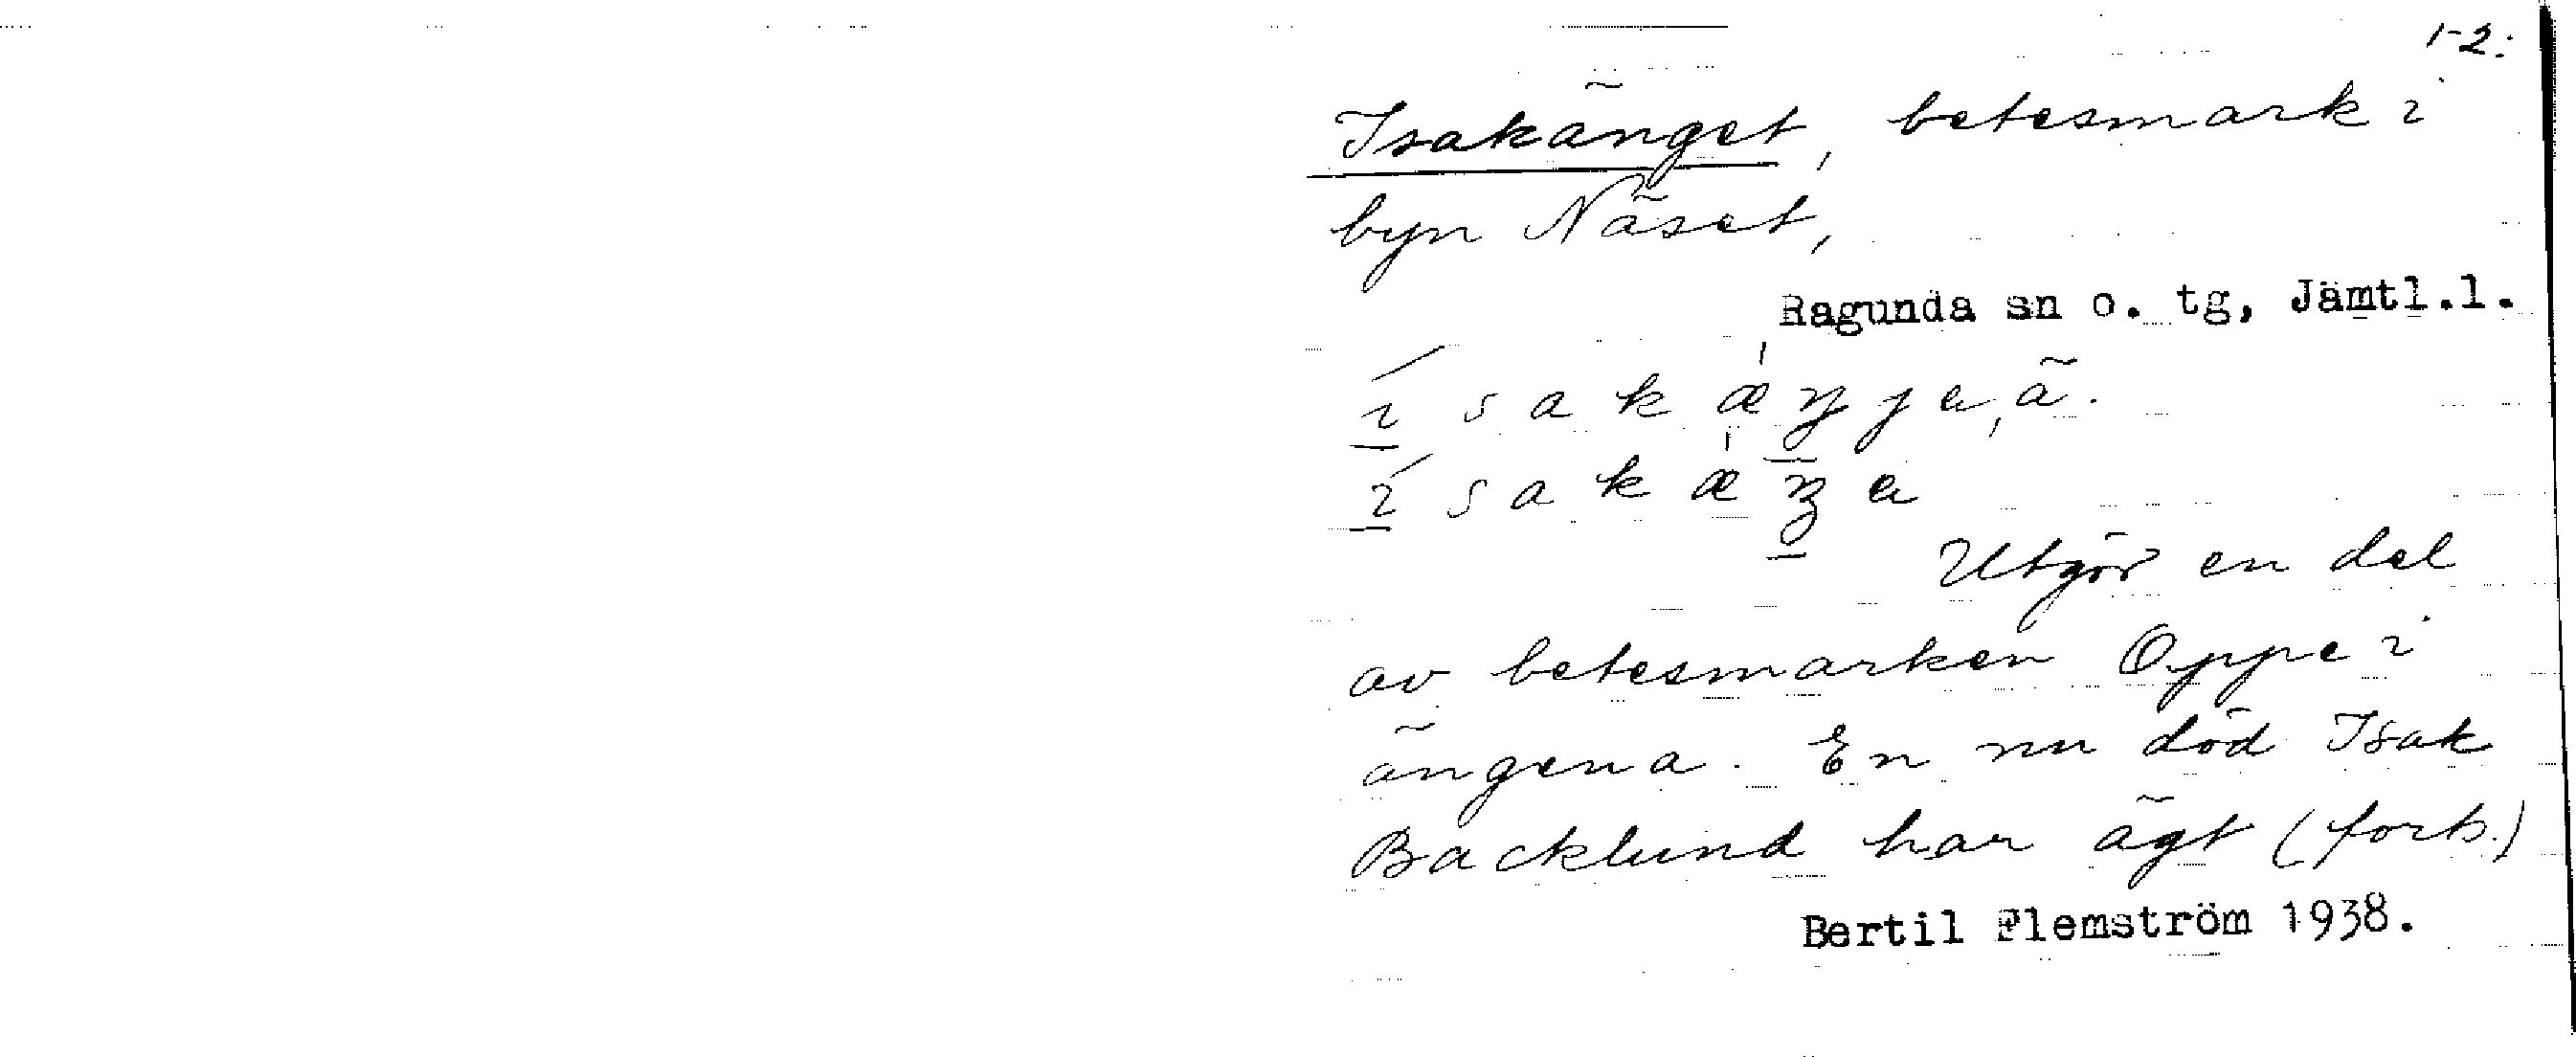 1-2.
Isakänget, betesmark i
byn Näset,
Ragunda sn o. tg, Jämtl.l.
í s a k æ̍ ŋ j a, ä.
í s a k æ̍ ŋ a
Utgör en del
av betesmarken Oppe i
ängena. En nu död Isak
Backlund har ägt (forts.)
Bertil Flemström 1938.